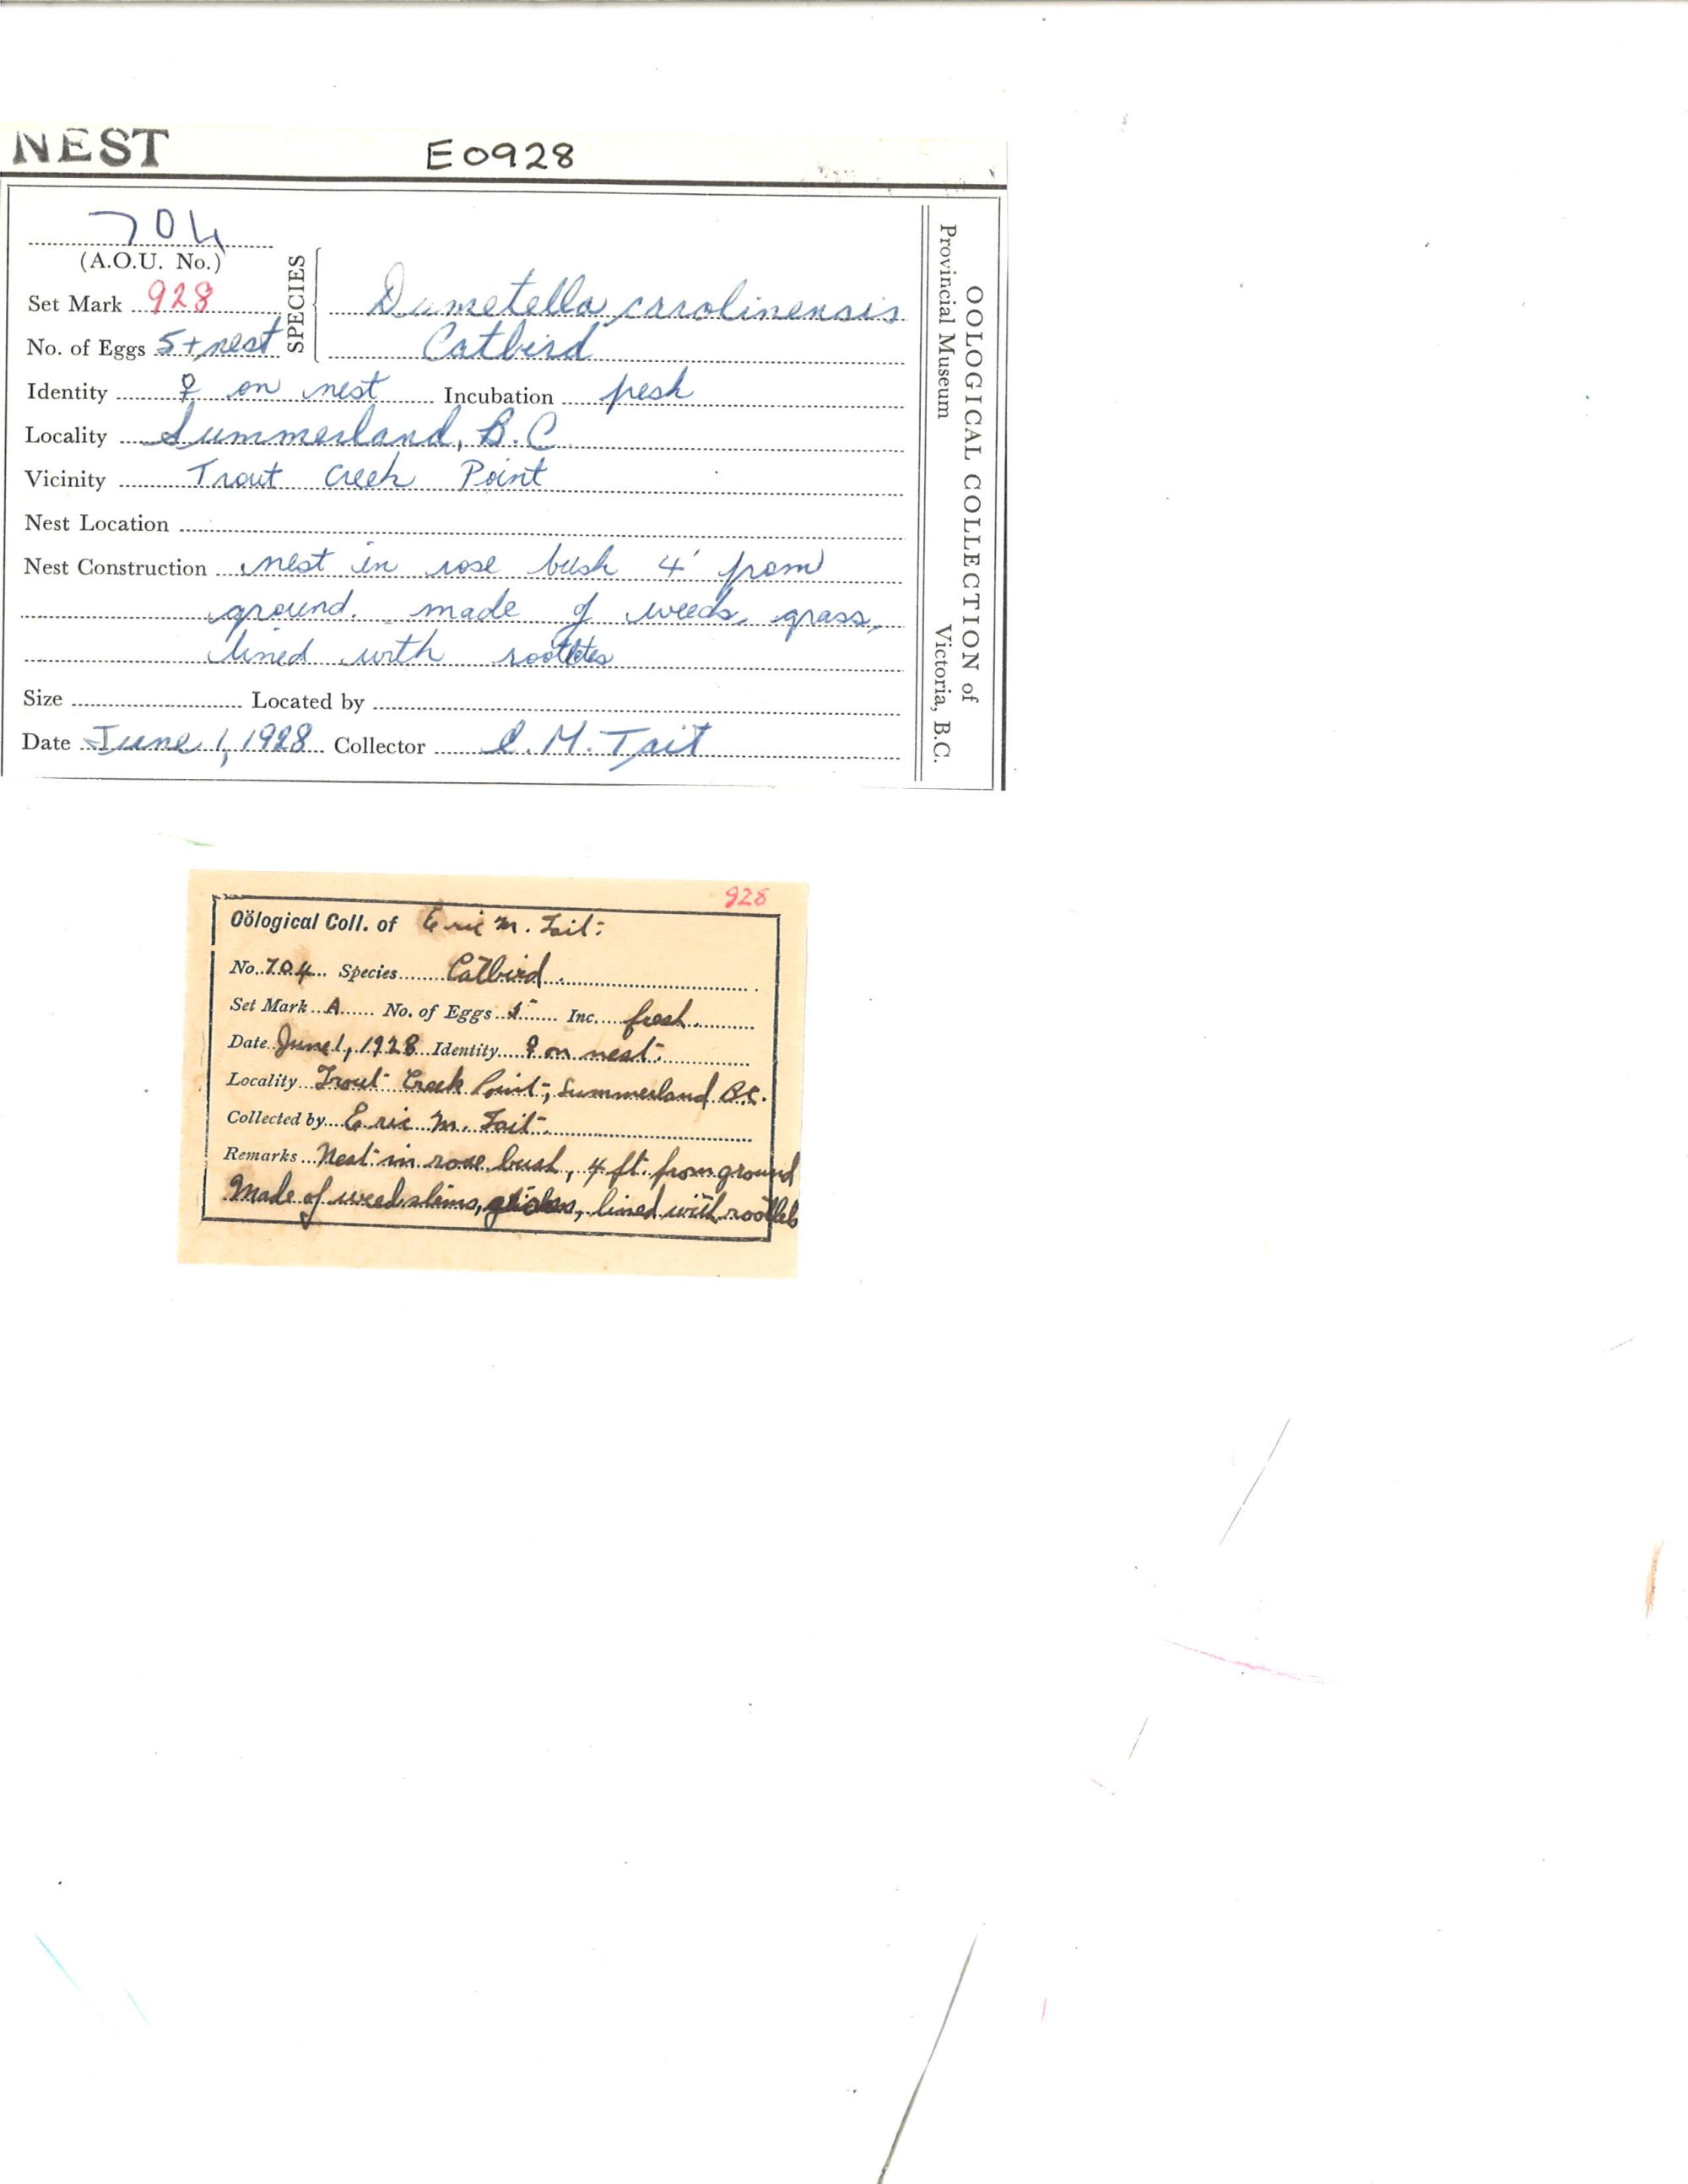 NEST E0928
704
(A.O.U. No.)
SPECIES
Set Mark 928 Dumetella carolinensis
No. of Eggs 5 + nest Catbird
Identity ♀ on nest Incubation fresh
Locality Summerland, B.C
Vicinity Trout Creek Point
Nest Location
Nest Construction nest in rose bush 4' from
ground. made of weeds, grass,
lined with rootlets
Size Located by
Date June 1, 1928 Collector E. M. Tait
OOLOGICAL COLLECTION of
Provincial Museum Victoria, B.C.
928
Oölogical Coll. of Eric M. Tait
No. 704 Species Catbird.
Set Mark A No. of Eggs 5 Inc. fresh.
Date June 1, 1928 Identity ♀ on nest.
Locality Trout Creek Point, Summerland B.C.
Collected by Eric M. Tait.
Remarks Nest in rose bush, 4 ft. from ground
Made of weed stems, lined with rootlets